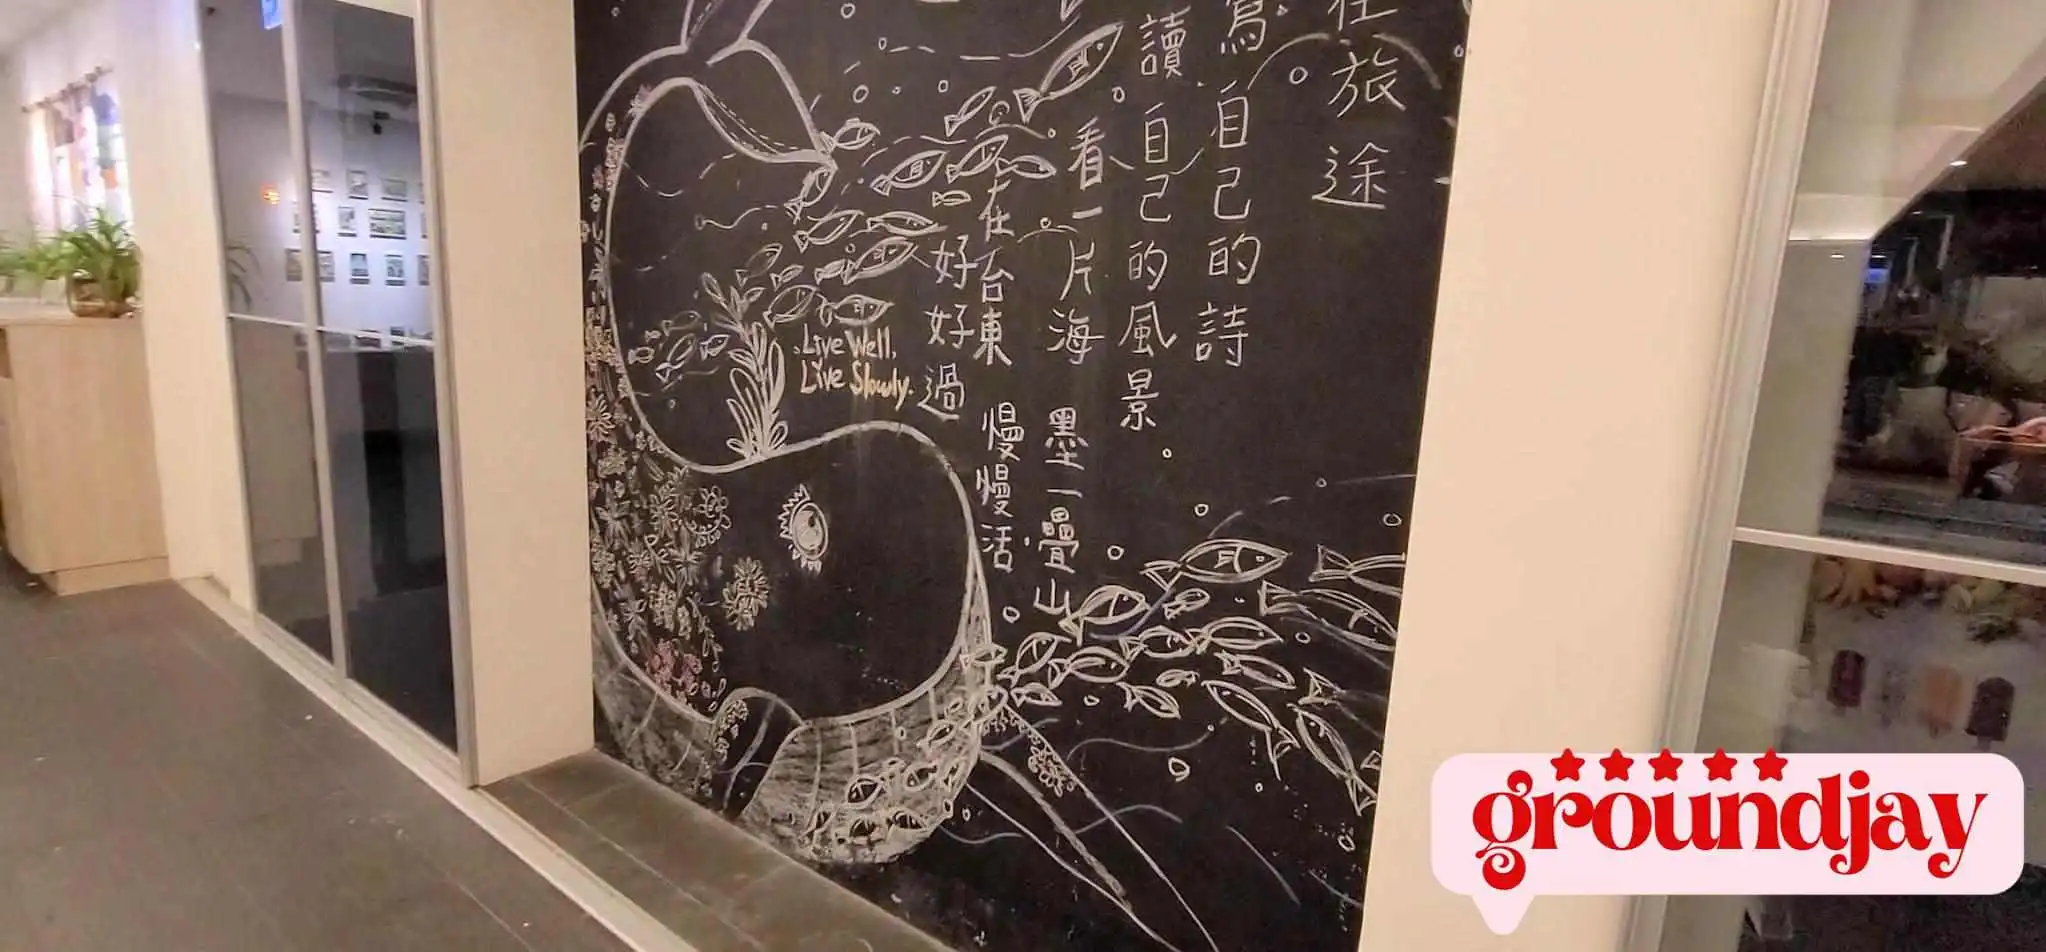 在旅途
寫自己的詩
讀自己的風景
看一片海 墨一疊山
在台東 慢慢活
好好過
Live Well,
Live Slowly.
groundjay